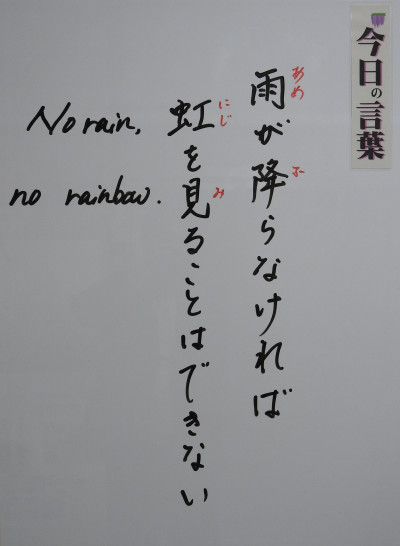 今日の言葉
雨が降らなければ
あめ
ふ
虹を見ることはできない
にじ
み
No rain,
no rainbow.